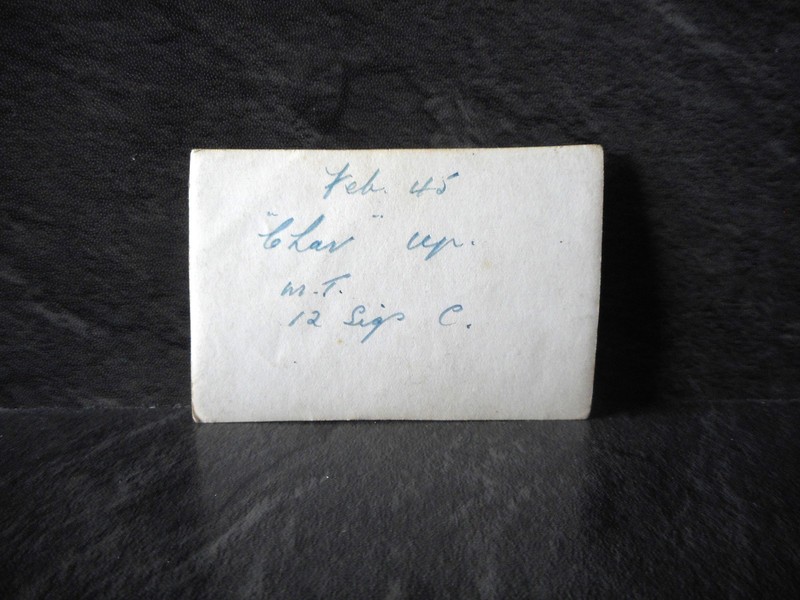 Feb. 45
"Char" up.
M.T.
12 Sigs C.